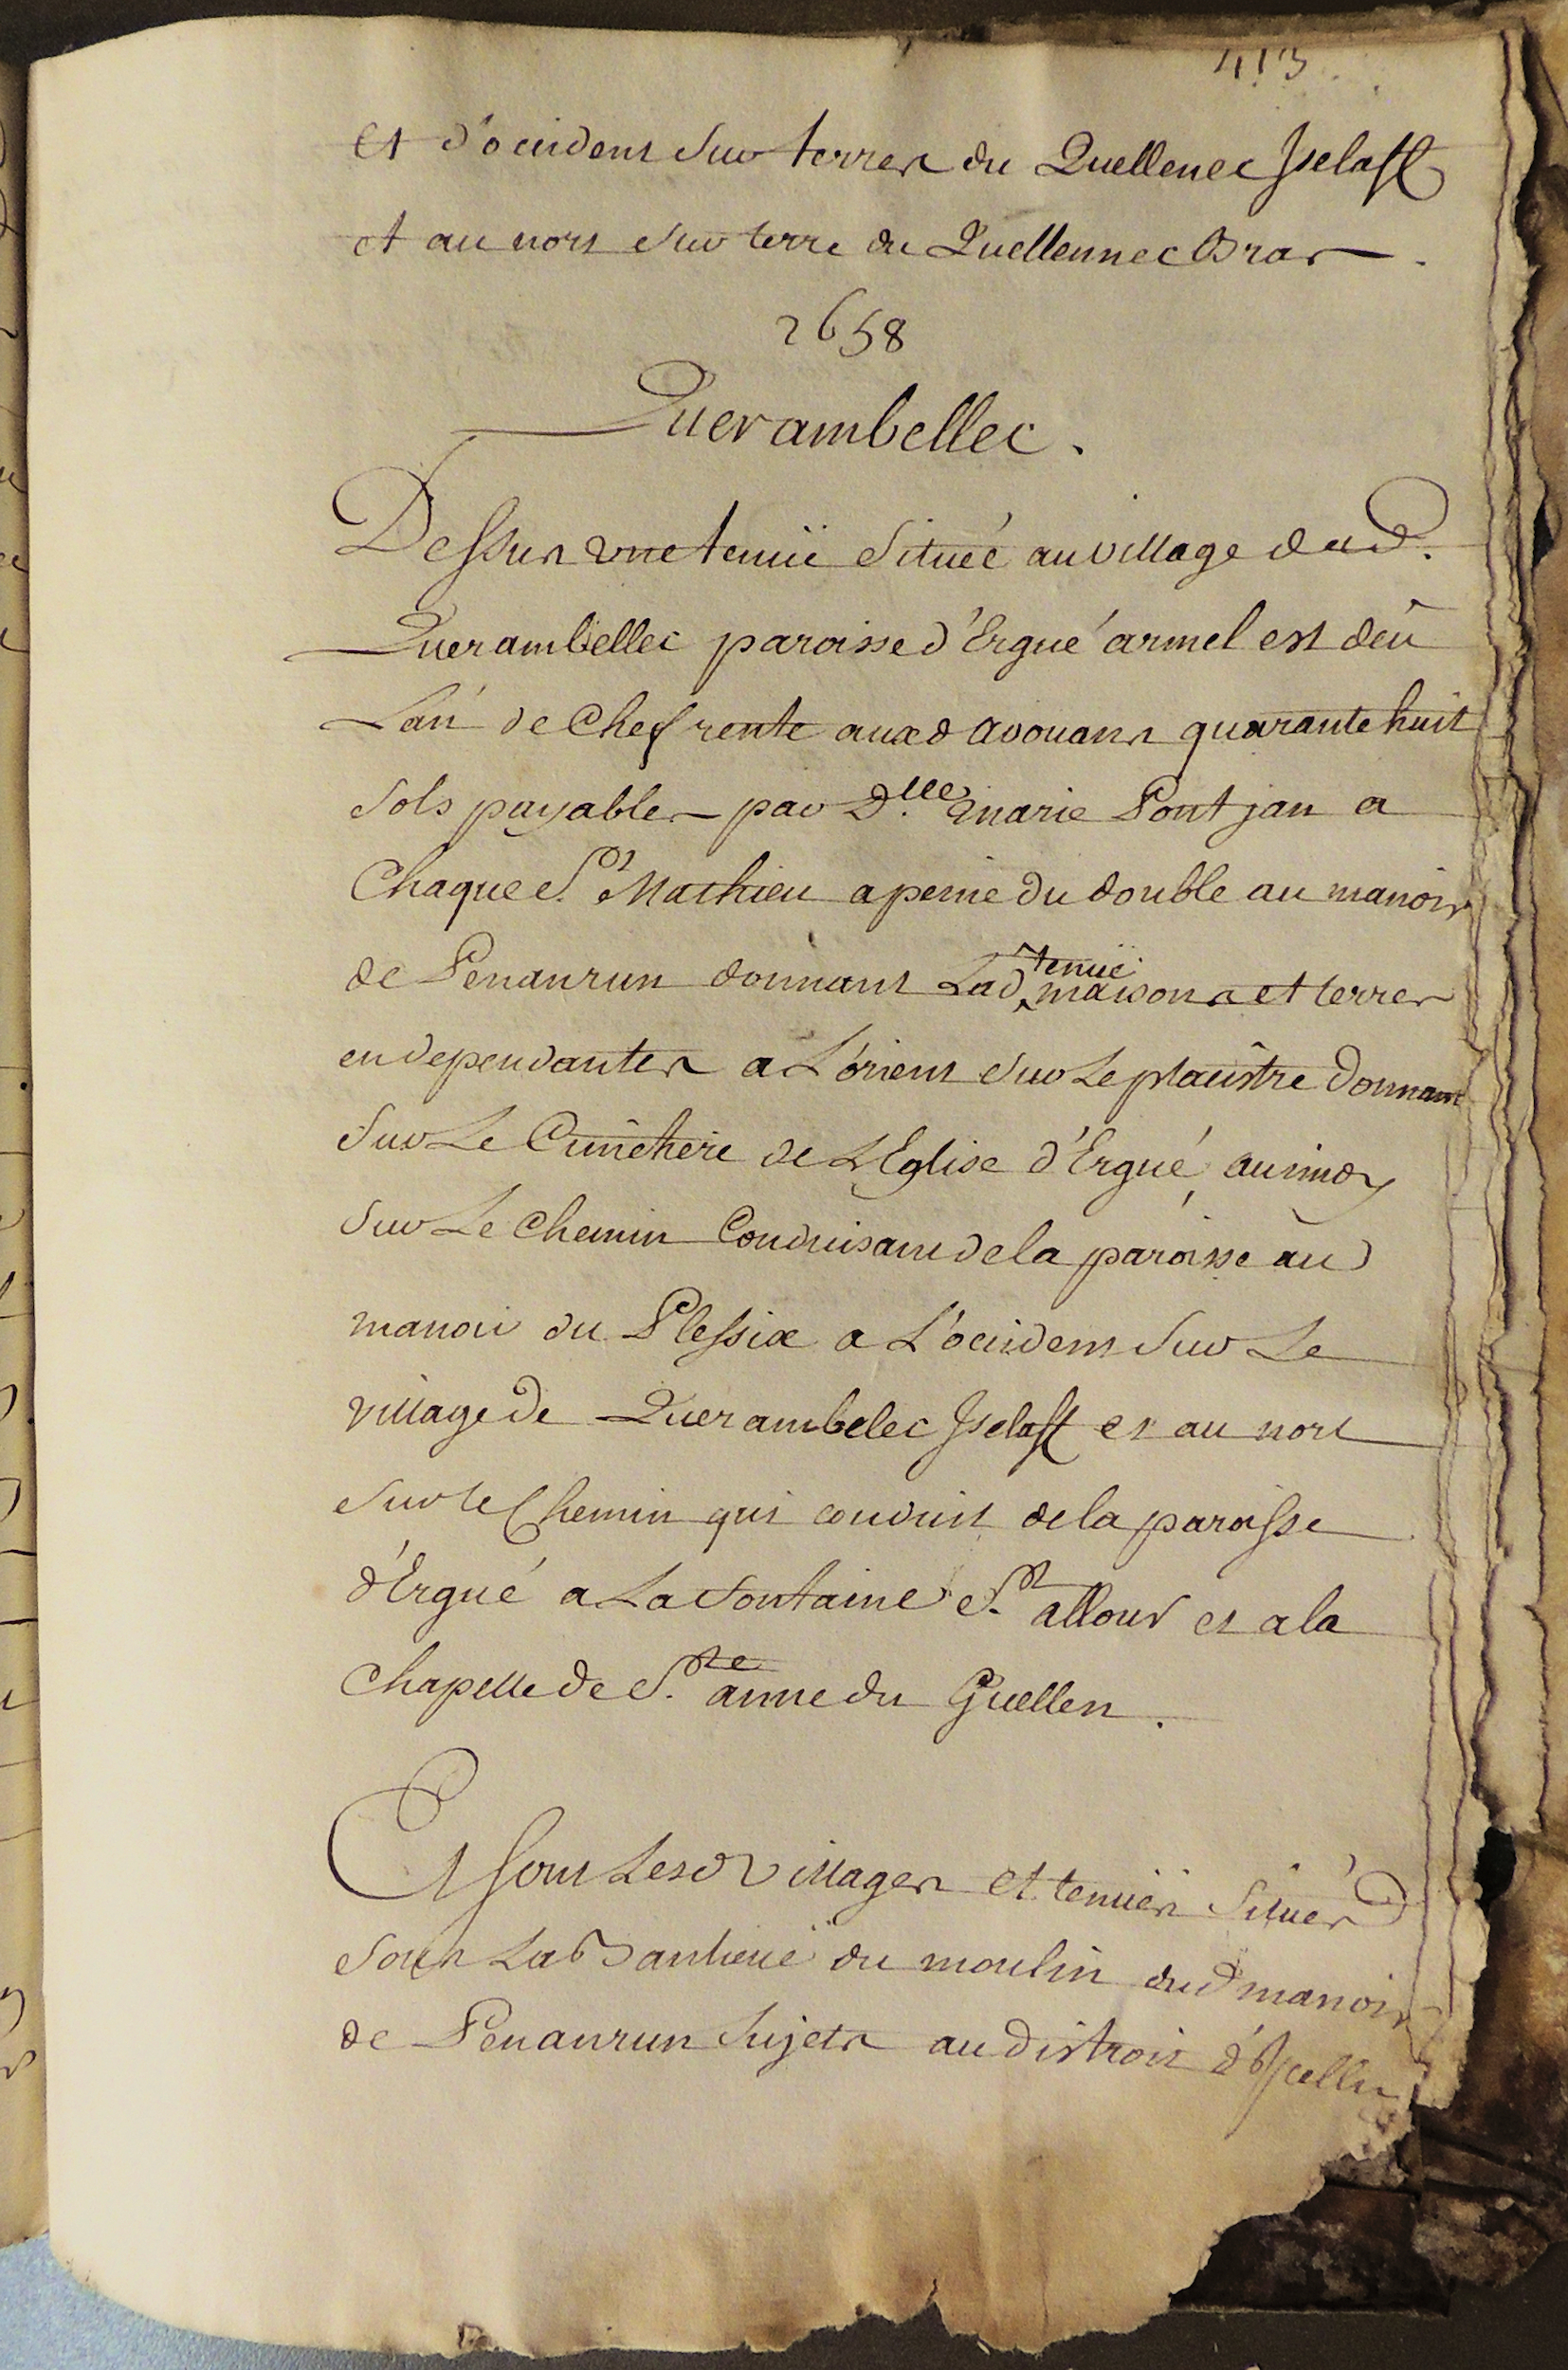 413
et d'occident sur terres du Quellenec Jselaff
et au nort sur terre du Quellennec Bras.
2658
Querambellec.
Dessus une tenüe situéé au village dud.
Querambellec paroisse d'Ergué armel est deû
L'an de Cheffrente auxd avouans quarante huit
sols payables par D.lle Marie Pontjan a
Chaque St Mathieu a peine du double au manoir
de Penanrun donnant Lad tenüe maisons et terres
en dependantes a L'orient sur Le plaistre donnant
sur Le Cimetiere de L'Eglise d'Ergué au midy
sur Le Chemin Conduisant de la paroisse au
manoir du Plessix a L'occident sur Le
village de Querambelec Jselaff et au nort
sur le Chemin qui conduit de la paroisse
d'Ergué a La fontaine St allour et a la
chapelle de Ste anne du Guellen.
Et sont Lesd villages et tenües situés
sous La Banlieuë du moulin dud manoir
de Penanrun sujets au distroit d'Jcelluy